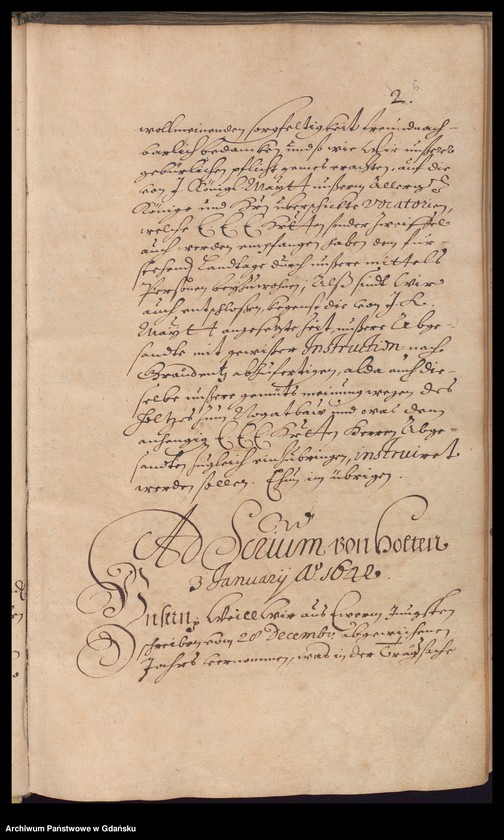 2.
6
wollmeinenden sorgfeltigkeit freundnach-
barlich bedancken, undt wie wir unsers
gebürlichen pflicht gemes erachten, auf die
von J. Königl. Maytt unserm Allergst
Könige und Herrn überschickte Vocatorien,
welche E E E Hrten sonder Zweiffel
auch werden empfangen haben den für-
stehend Landtage durch unsere mittels
Personen beyzuwohnen, Alß sindt wir
auch entschlossen, kegenst die von J. K.
Maytt angesetzte Zeit unsere Abge-
sandte mit gewisser Instruction nach
Graudentz abzufertigen, alda auch die-
selbe unsere gemüts meinung wegen des
Holtzes zum Nogatbaw und was dem
anhengig E E E Hrten Herren Abge-
sandten zugleich einzubringen, instruiret
werden sollen. Thun im übrigen.
Ad Serium von Holten
3 January Ao 1642.
Unsern. Weill wir aus Ewerm Jüngsten
schreiben vom 28 Decembr. abgewichenen
Jahrs vernommen, was in der
Archiwum Państwowe w Gdańsku